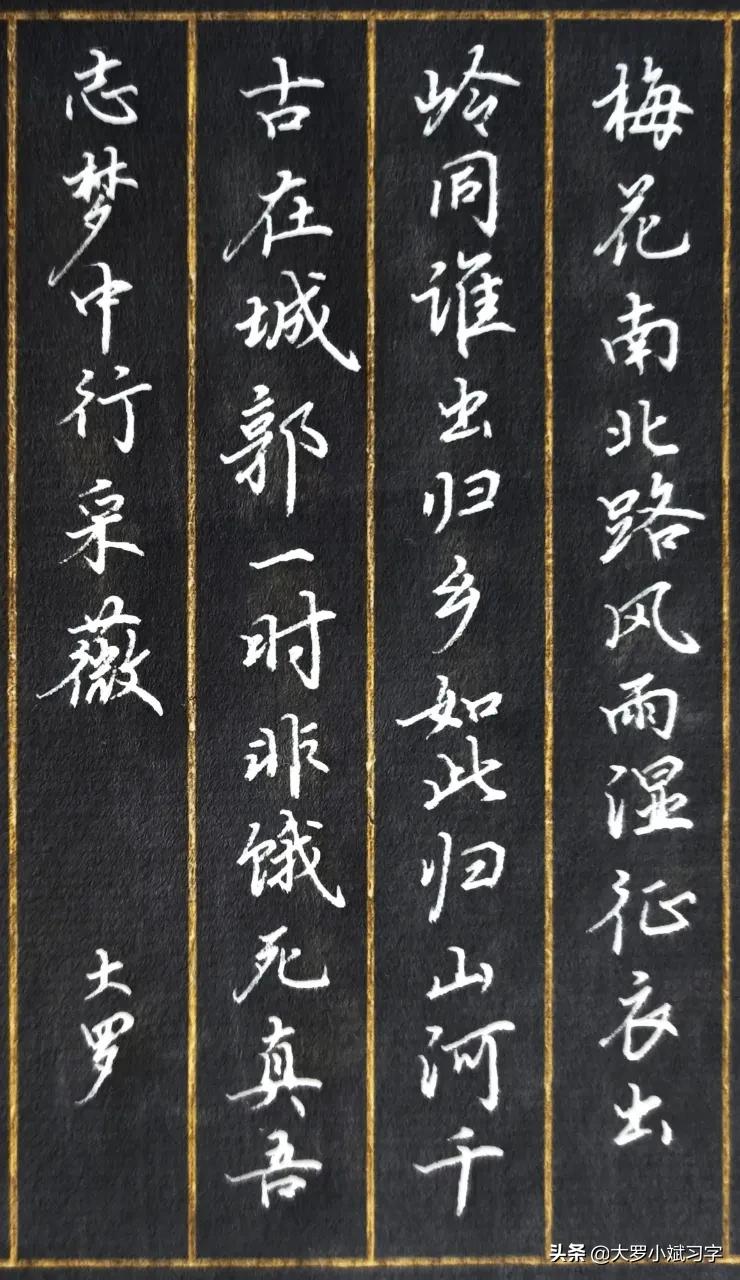 梅花南北路风雨湿征衣出
岭同谁出归乡如此归山河千
古在城郭一时非饿死真吾
志梦中行采薇
大罗
头条 @大罗小斌习字